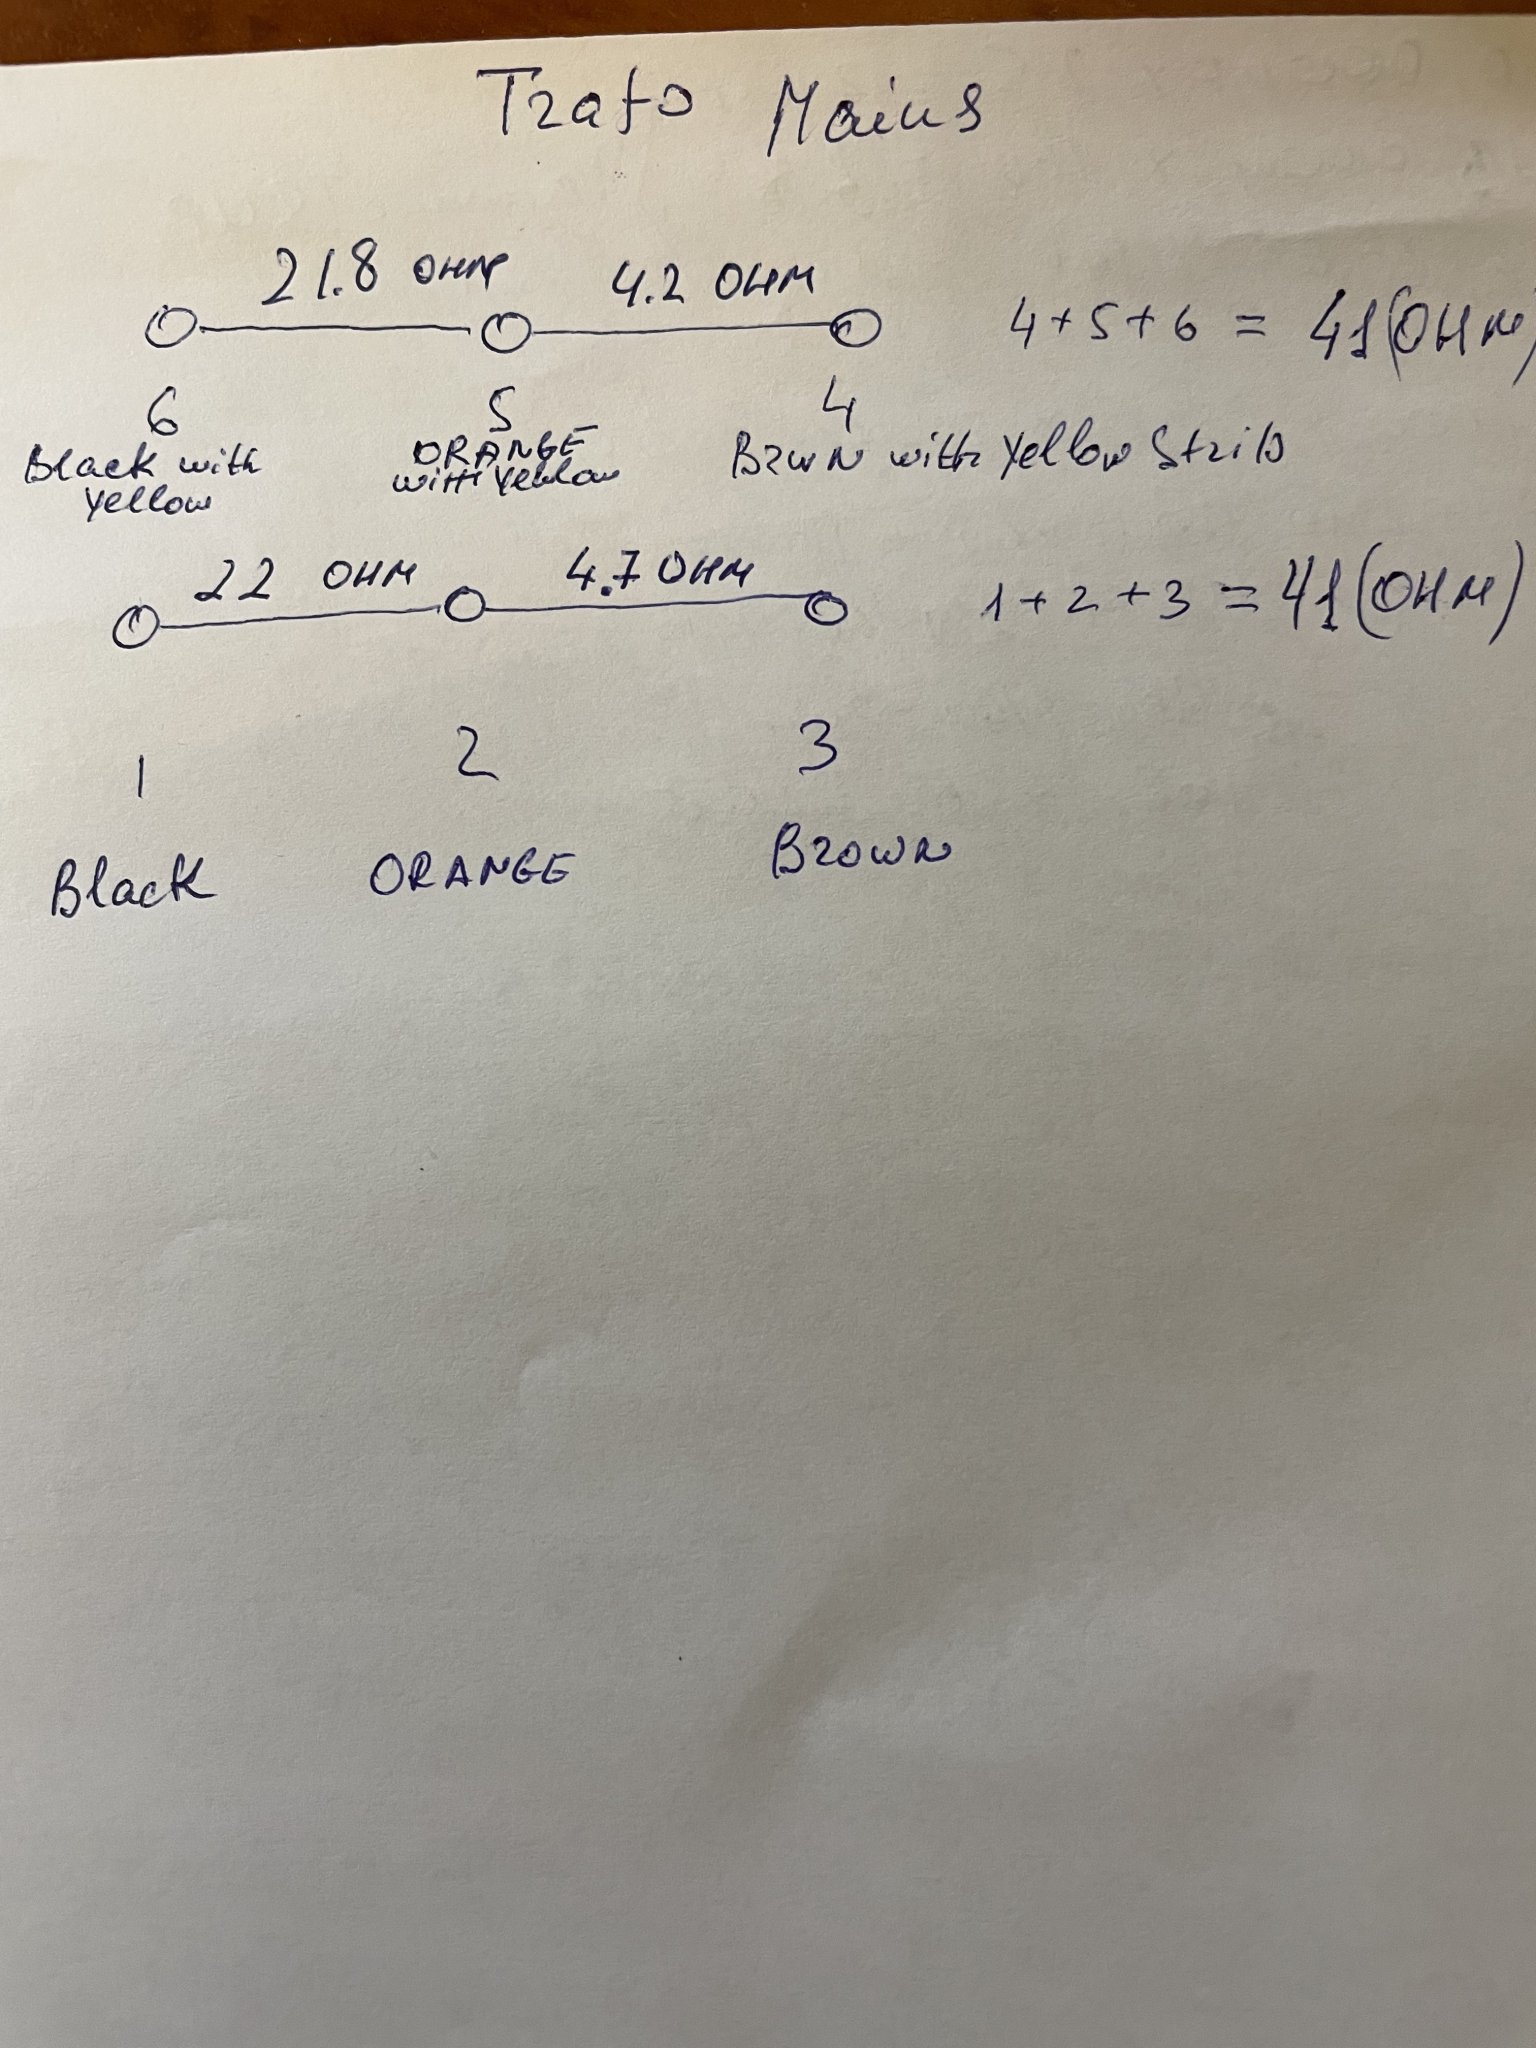 Trafo Mains
21.8 OHM 4.2 OHM
4+5+6 = 41(OHM)
6 5 4
Black with ORANGE Brwn with Yellow Strip
Yellow with Yellow
22 OHM 4.7 OHM
1+2+3 = 41(OHM)
1 2 3
Black ORANGE Brown